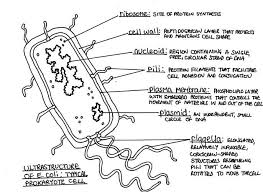 ribosome: SITE OF PROTEIN SYNTHESIS
cell wall: PEPTIDOGLYCAN LAYER THAT PROTECTS
AND MAINTAINS CELL SHAPE
nucleoid: REGION CONTAINING A SINGLE,
FREE, CIRCULAR STRAND OF DNA
pili: PROTEIN FILAMENTS THAT FACILITATE
CELL ADHESION AND CONJUGATION
PLASMA MEMBRANE: PHOSPHOLIPID LAYER
WITH EMBEDDED PROTEINS THAT CONTROLS THE
MOVEMENT OF MATERIALS IN AND OUT OF THE CELL
plasmid: AN INDEPENDENT, SMALL
CIRCLE OF DNA
flagella: ELONGATED,
RELATIVELY MOVEABLE,
CORKSCREW-SHAPED
STRUCTURES RESEMBLING
PILI THAT CAN BE
ROTATED TO MOVE THE CELL
ULTRASTRUCTURE
OF E. coli: TYPICAL
PROKARYOTE CELL